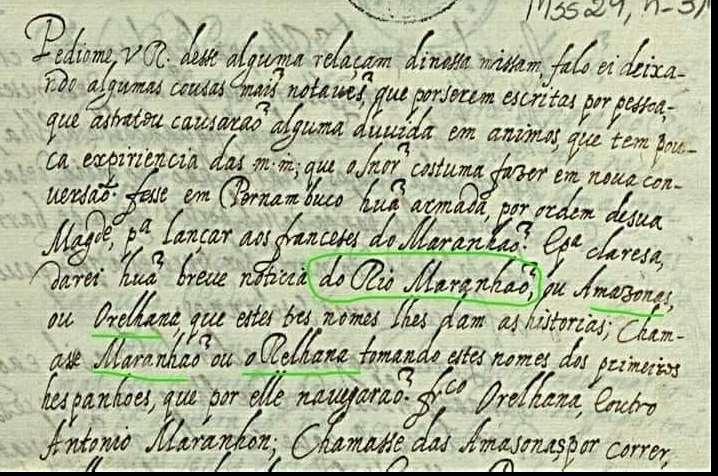 Mss 29, n-31
Pediome V R. desse alguma relaçam dinossa missam, falo ei deixa-
ndo algumas cousas mais notaves, que por serem escritas por pessoa,
que as tratou causarão alguma duvida em animos, que tem pou-
ca expiriencia das m.m; que o Snor costuma fazer em noua con-
uersão. fesse em Pernambuco huã armada, por ordem de sua
Magde, pa lançar aos franceses do Maranhaõ. E pa claresa,
darei huã breve noticia do Rio Maranhaõ, ou Amazonas,
ou Orelhana, que estes tres nomes lhes dam as historias; Cham-
asse Maranhaõ ou oRelhana tomando estes nomes dos primeiros
hespanhoes, que por elle nauegaraõ. frco Orelhana, E outro
Antonio Maranhon; Chamasse das Amasonas, por correr,